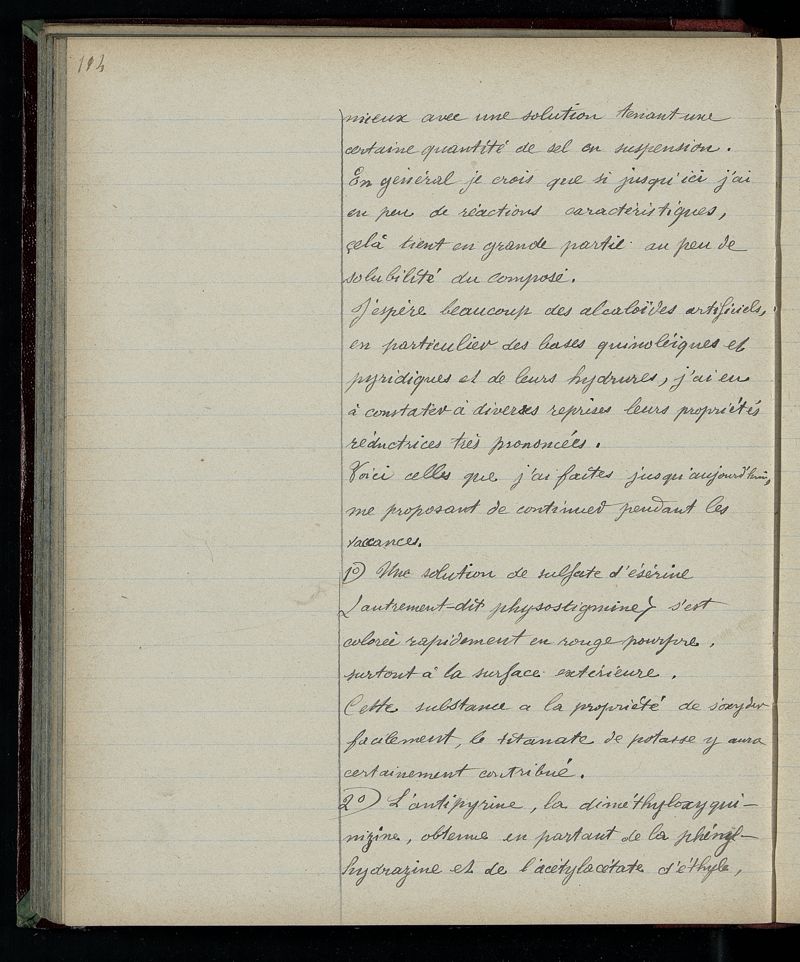 194
mieux avec une solution tenant une
certaine quantité de sel en suspension.
En général je crois que si jusqu'ici j'ai
eu peu de réactions caractéristiques,
celà tient en grande partie au peu de
solubilité du composé.
J'espère beaucoup des alcaloïdes artificiels,
en particulier des bases quinoléiques et
pyridiques et de leurs hydrures, j'ai eu
à constater à diverses reprises leurs propriétés
réductrices très prononcées.
Voici celles que j'ai faites jusqu'aujourd'hui,
me proposant de continuer pendant les
vaccances.
1o) Une solution de sulfate d'ésérine
(autrement-dit physostigmine) s'est
colorée rapidement en rouge pourpre,
surtout à la surface extérieure.
Cette substance a la propriété de s'oxyder
facilement, le titanate de potasse y aura
certainement contribué.
2o) L'antipyrine, la diméthyloxyqui-
nizine, obtenue en partant de la phényl-
hydrazine et de l'acétylacétate d'éthyle,